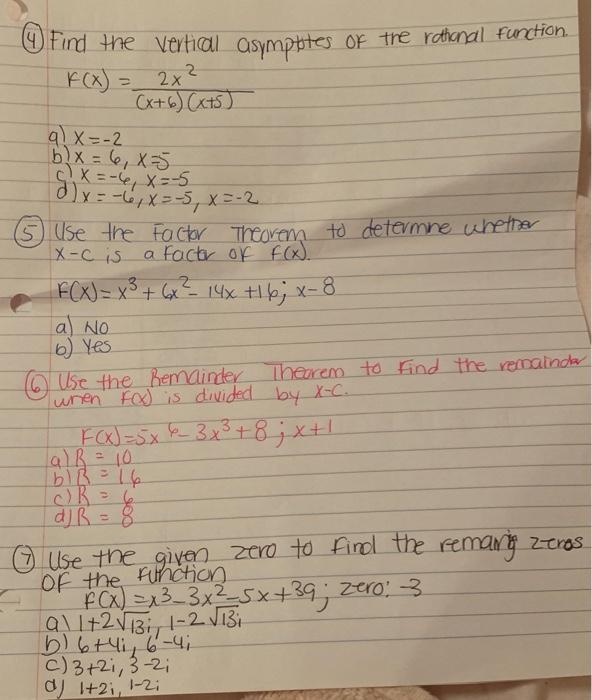 ④ Find the vertical asymptotes of the rational function.
F(x) = 2x²
(x+6)(x+5)
a) x=-2
b) x = 6, x=5
c) x = -6, x=-5
d) x = -6, x=-5, x=-2
⑤ Use the Factor Theorem to determine whether
x-c is a factor of f(x).
F(x)=x³+6x²-14x+16; x-8
a) No
b) Yes
⑥ Use the Remainder Theorem to find the remainder
when F(x) is divided by x-c.
F(x)=5x⁶-3x³+8; x+1
a) R = 10
b) R = 16
c) R = 6
d) R = 8
⑦ Use the given zero to find the remaing zeros
of the function
f(x)=x³-3x²-5x+39; zero: -3
a) 1+2√13i, 1-2√13i
b) 6+4i, 6-4i
c) 3+2i, 3-2i
d) 1+2i, 1-2i